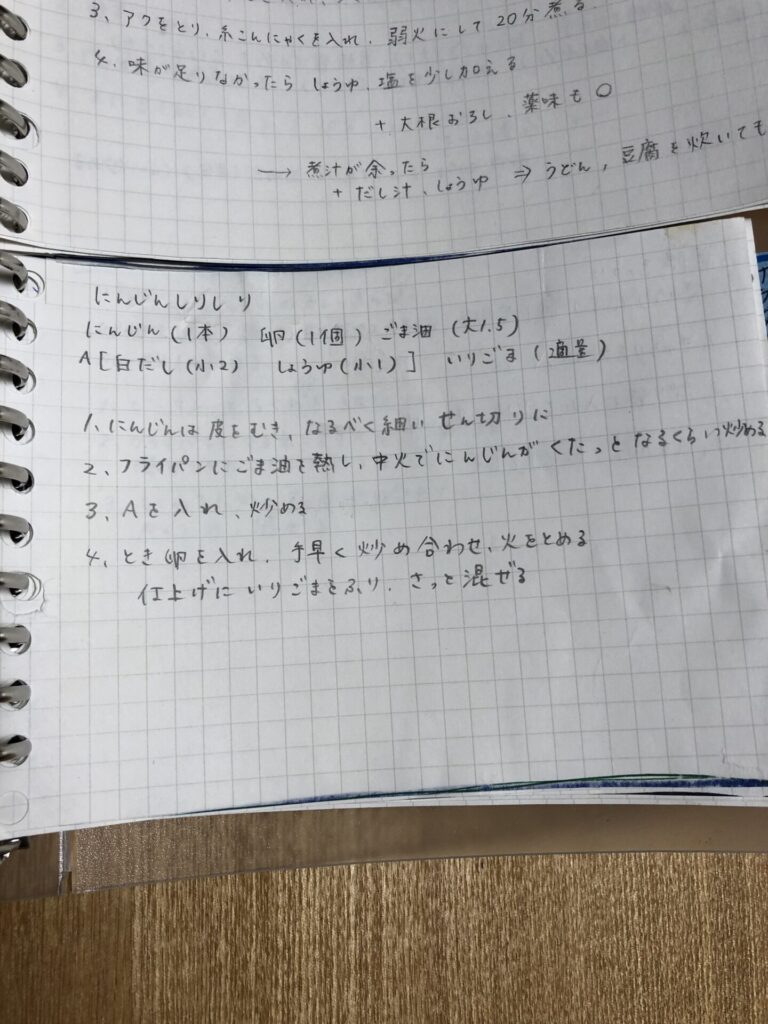 3、アクをとり、糸こんにゃくを入れ、弱火にして20分煮る
4、味が足りなかったら しょうゆ、塩を少し加える
+ 大根おろし、薬味も○
→ 煮汁が余ったら ⇒ うどん、豆腐を炊いても
+ だし汁、しょうゆ
にんじんしりしり
にんじん(1本) 卵(1個) ごま油(大1.5)
A[白だし(小2) しょうゆ(小1)] いりごま(適量)
1、にんじんは皮をむき、なるべく細いせん切りに
2、フライパンにごま油を熱し、中火でにんじんがくたっとなるくらい炒める
3、Aを入れ、炒める
4、とき卵を入れ、手早く炒め合わせ、火をとめる
仕上げにいりごまをふり、さっと混ぜる